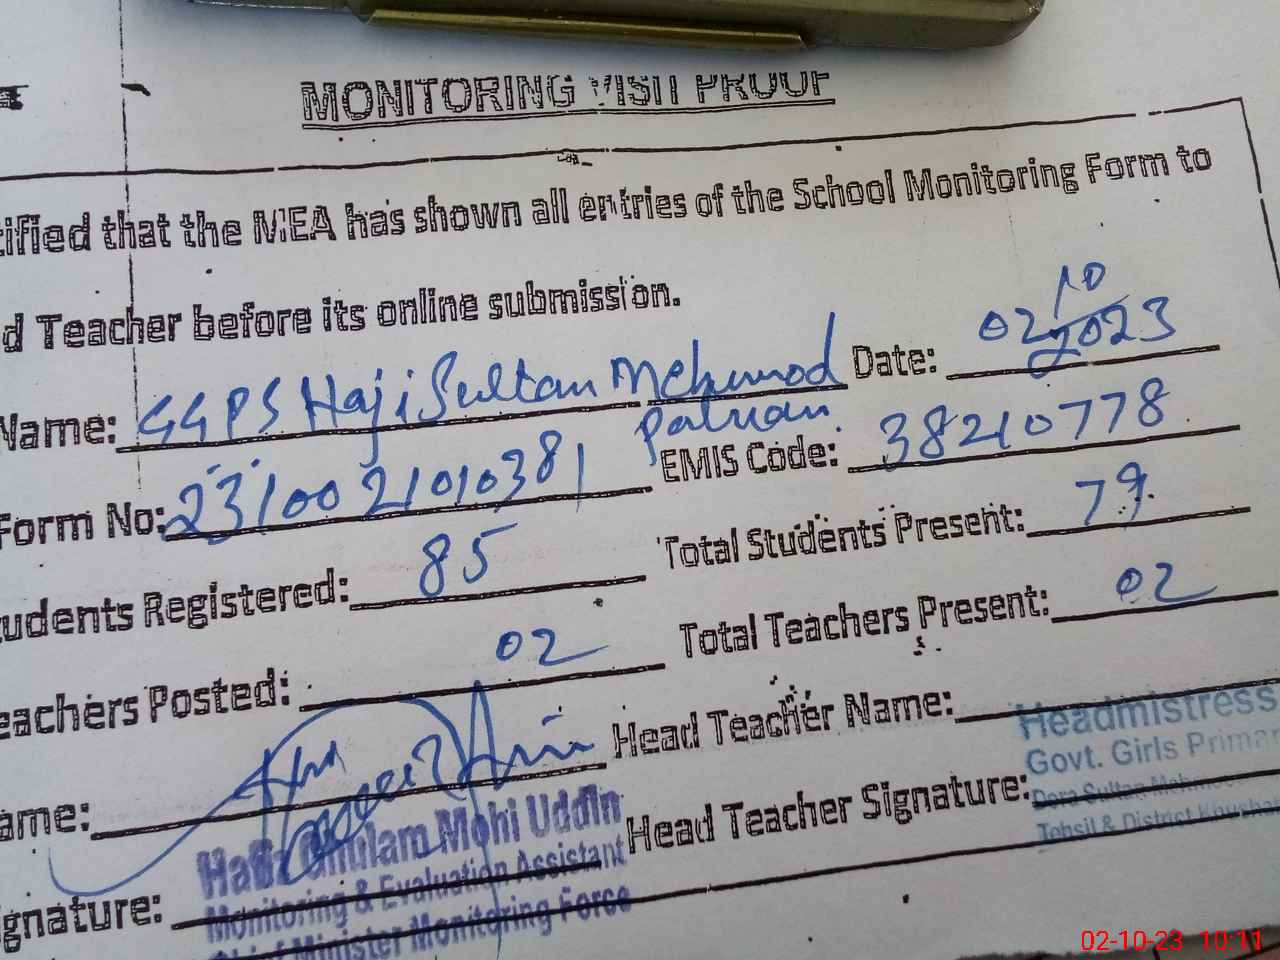 MONITORING VISIT PROOF
tified that the MEA has shown all entries of the School Monitoring Form to
d Teacher before its online submission.
Name: GGPS Haji Sultan Mehmood Date: 02/10/2023
EMIS Code: 38210778
Form No: 2310021010381
tudents Registered: 85 Total Students Present: 79
eachers Posted: 02 Total Teachers Present: 02
ame: Head Teacher Name:
Headmistress
Govt. Girls Primar
Dera Sultan Mehmoo
Tehsil & District Khushab
Head Teacher Signature:
Ghulam Mohi Uddin
Monitoring & Evaluation Assistant
Chief Minister Monitoring Force
gnature:
02-10-23 10:11